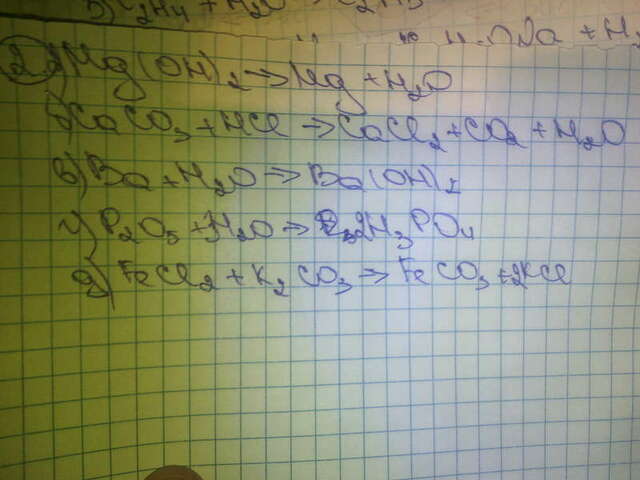 5) C₂H₄ + H₂O →
ONa + H
22 а) Mg(OH)₂ → Mg + H₂O
б) CaCO₃ + HCl → CaCl₂ + CO₂ + H₂O
в) Ba + H₂O → Ba(OH)₂
г) P₂O₅ + 3H₂O → 2H₃PO₄
д) FeCl₂ + K₂CO₃ → FeCO₃ + 2KCl